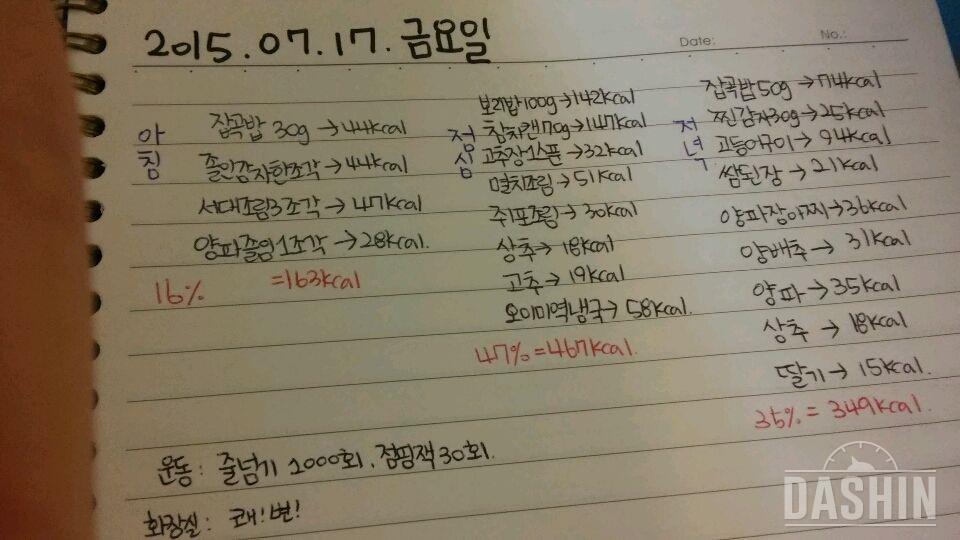 2015.07.17.금요일
Date:
No.:
아침
잡곡밥 30g → 44kcal
졸인감자한조각 → 44kcal
서대조림3조각 → 47kcal
양파졸임1조각 → 28kcal.
16% = 163kcal
점심
보리밥100g → 142kcal
참치캔70g → 147kcal
고추장1스푼 → 32kcal
멸치조림 → 51kcal
쥐포조림 → 30kcal
상추 → 18kcal
고추 → 19kcal
오이미역냉국 → 58kcal.
47% = 467kcal.
저녁
잡곡밥50g → 74kcal
찐감자30g → 25kcal
고등어구이 → 94kcal
쌈된장 → 21kcal
양파장아찌 → 36kcal
양배추 → 31kcal
양파 → 35kcal
상추 → 18kcal
딸기 → 15kcal.
35% = 349kcal.
운동: 줄넘기 1000회, 점핑잭 30회.
화장실: 쾌!변!
DASHIN